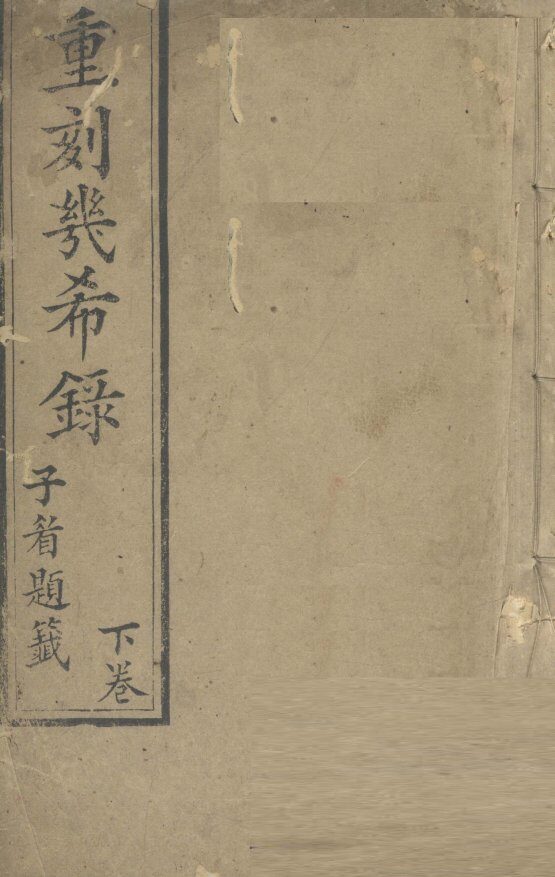 重刻幾希錄
下卷
子題籤